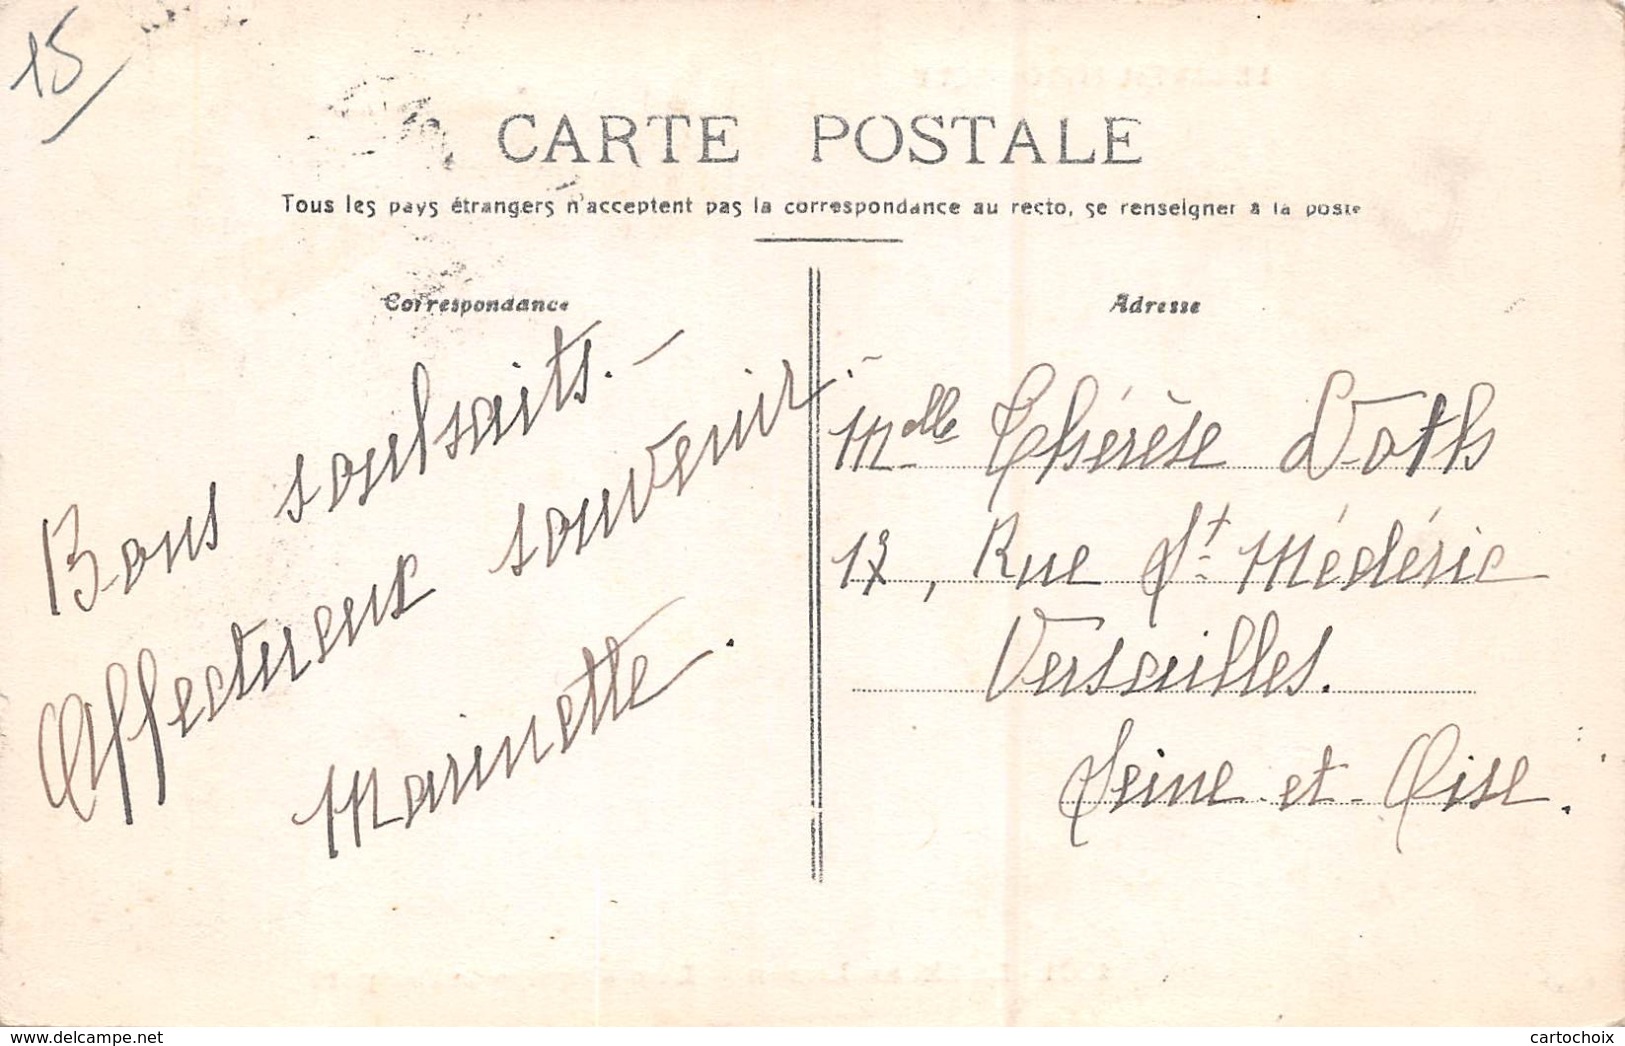 15
CARTE POSTALE
Tous les pays étrangers n'acceptent pas la correspondance au recto, se renseigner à la poste
Correspondance
Bons souhaits. —
Affectueux souvenir. ~
Marinette.
Adresse
Melle Thérèse Voth
17, Rue St. Médéric
Versailles.
Seine-et-Oise.
delcampe.net
cartochoix